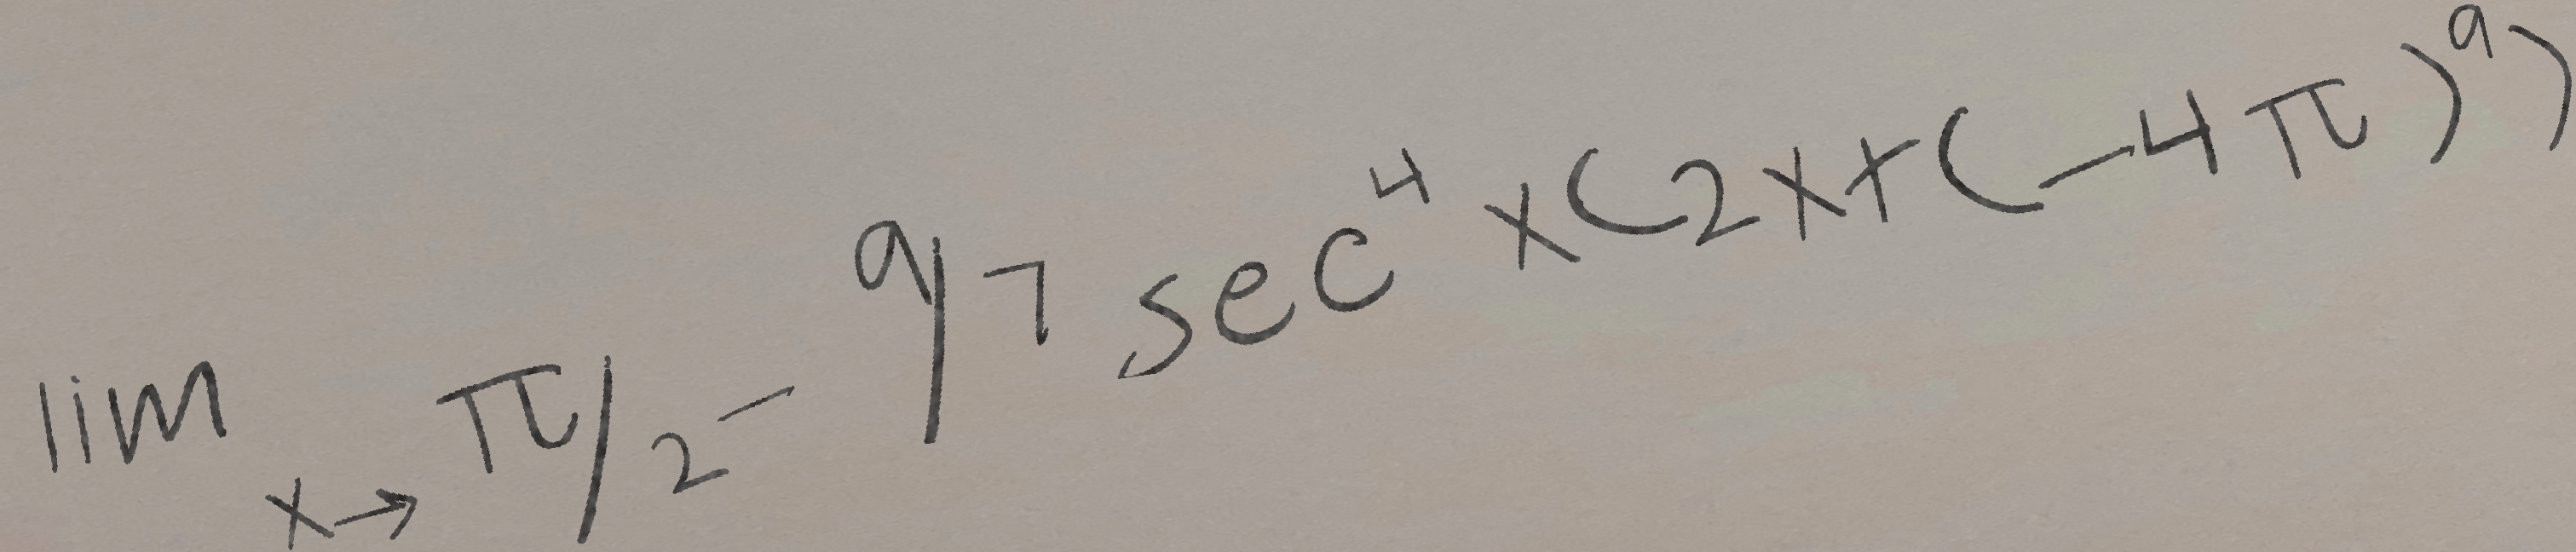 lim x→π/2⁻ 9/7 sec⁴ x(2x+(-4π)⁹)